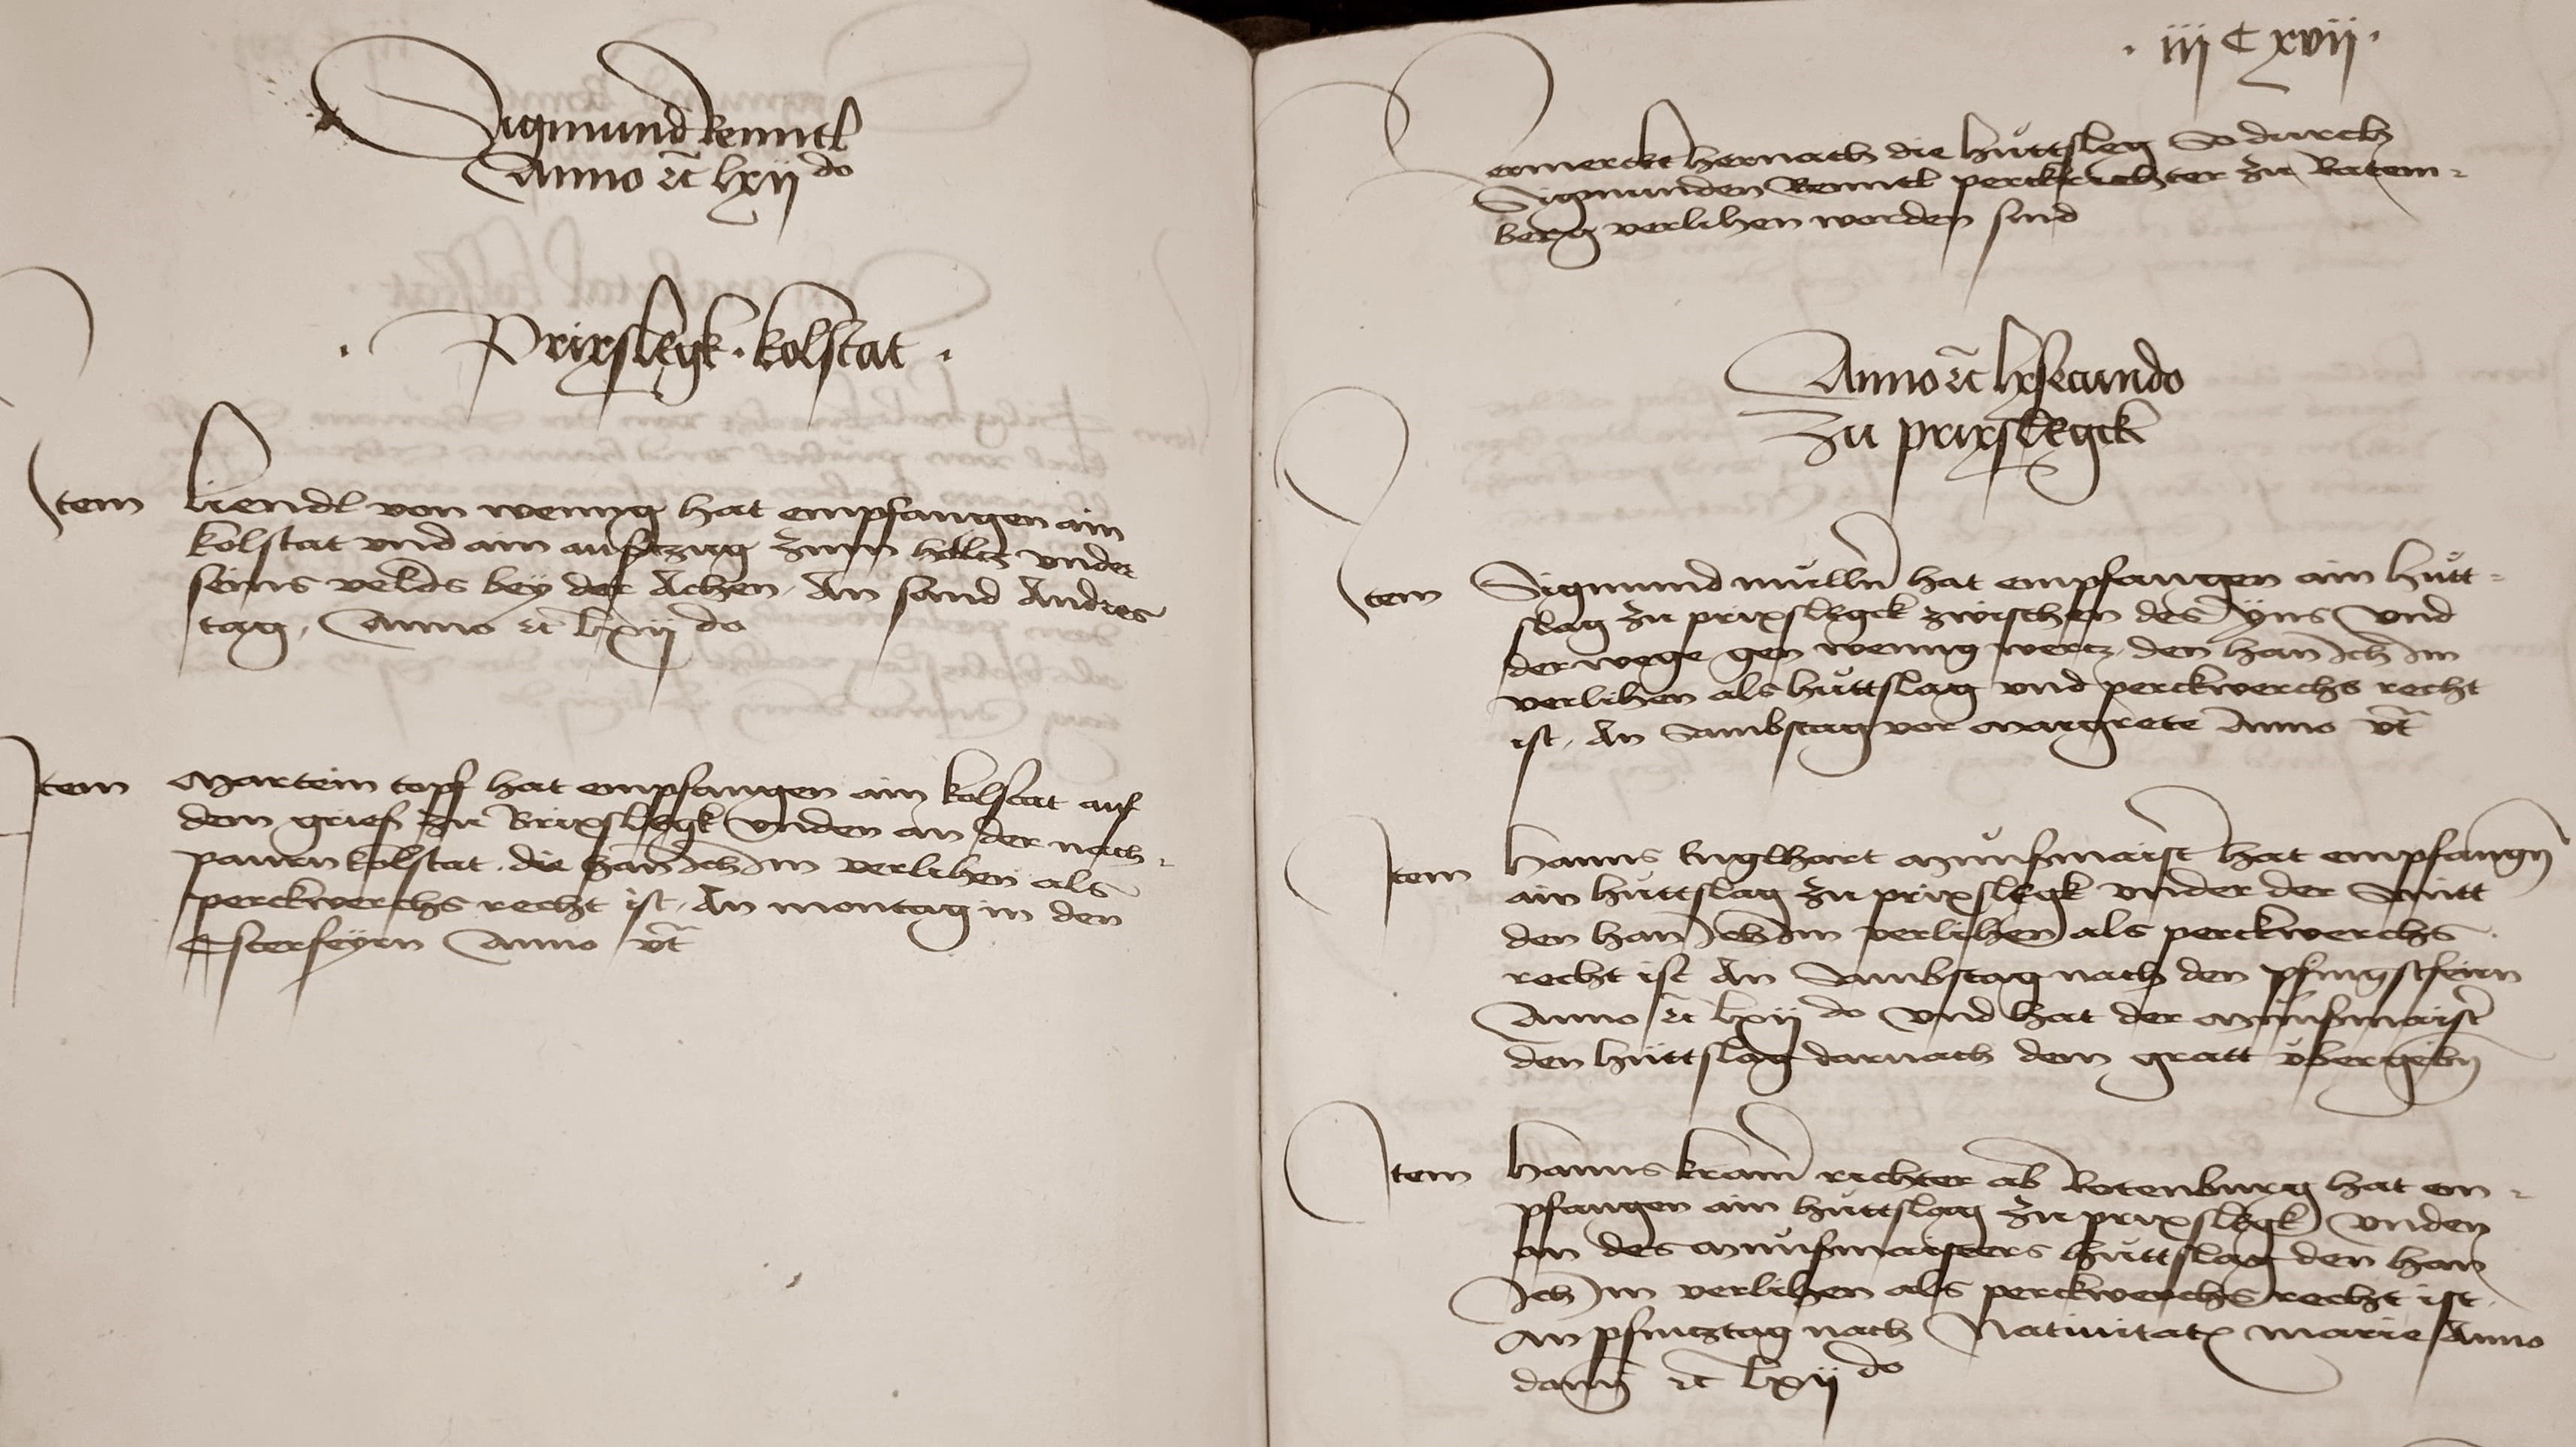 Sigmund Kenntl
Anno etc lxii do
Prixslegk · kolstat ·
Item Liendl von wenng hat empfangen ain
kolstat vnd ain aufzug zum holtz vnder
seins velds bey der Achen · An sand Andres
tag · Anno etc lxii do
Item Martein topf hat empfangen ain kolstat auf
dem gries zu Brixslegk vnden an der nach-
pauen kolstat · die han Ich Im verlihen als
perckwerchs recht ist · An montag in den
Osterfeyrn Anno vt
· iii C xvii ·
Vermerckt hernach die hüttsleg So durch
Sigmunden Kenntl perckrichter zu Ratem-
berg verlihen worden sind
Anno etc lxsecundo
Zu prixslegck
Item Sigmund müllner hat empfangen ain hütt-
slag zu prixslegck zwischen des yns vnd
der wege gen wenng wertz · den han Ich Im
verlihen als hüttslag vnd perckwerchs recht
ist · An Sambstag vor Margrete Anno vt
Item Hanns Englhart münsmaister hat empfangen
ain hüttslag zu prixslegk vnder der Smitt
den han Ich Im verlihen als perckwerchs
recht ist An Sambstag nach den pfingstfeirn
Anno etc lxii do vnd hat der münsmaister
den hüttslag darnach dem gratt übergeben
Item Hanns kramer richter ab Rotenburg hat em-
pfangen ain hüttslag zu prixslegk vnden
an des münsmaisters hüttslag den han
Ich Im verlihen als perckwerchs recht ist
An pfintztag nach Natiuitatis marie Anno
domini etc lxii do